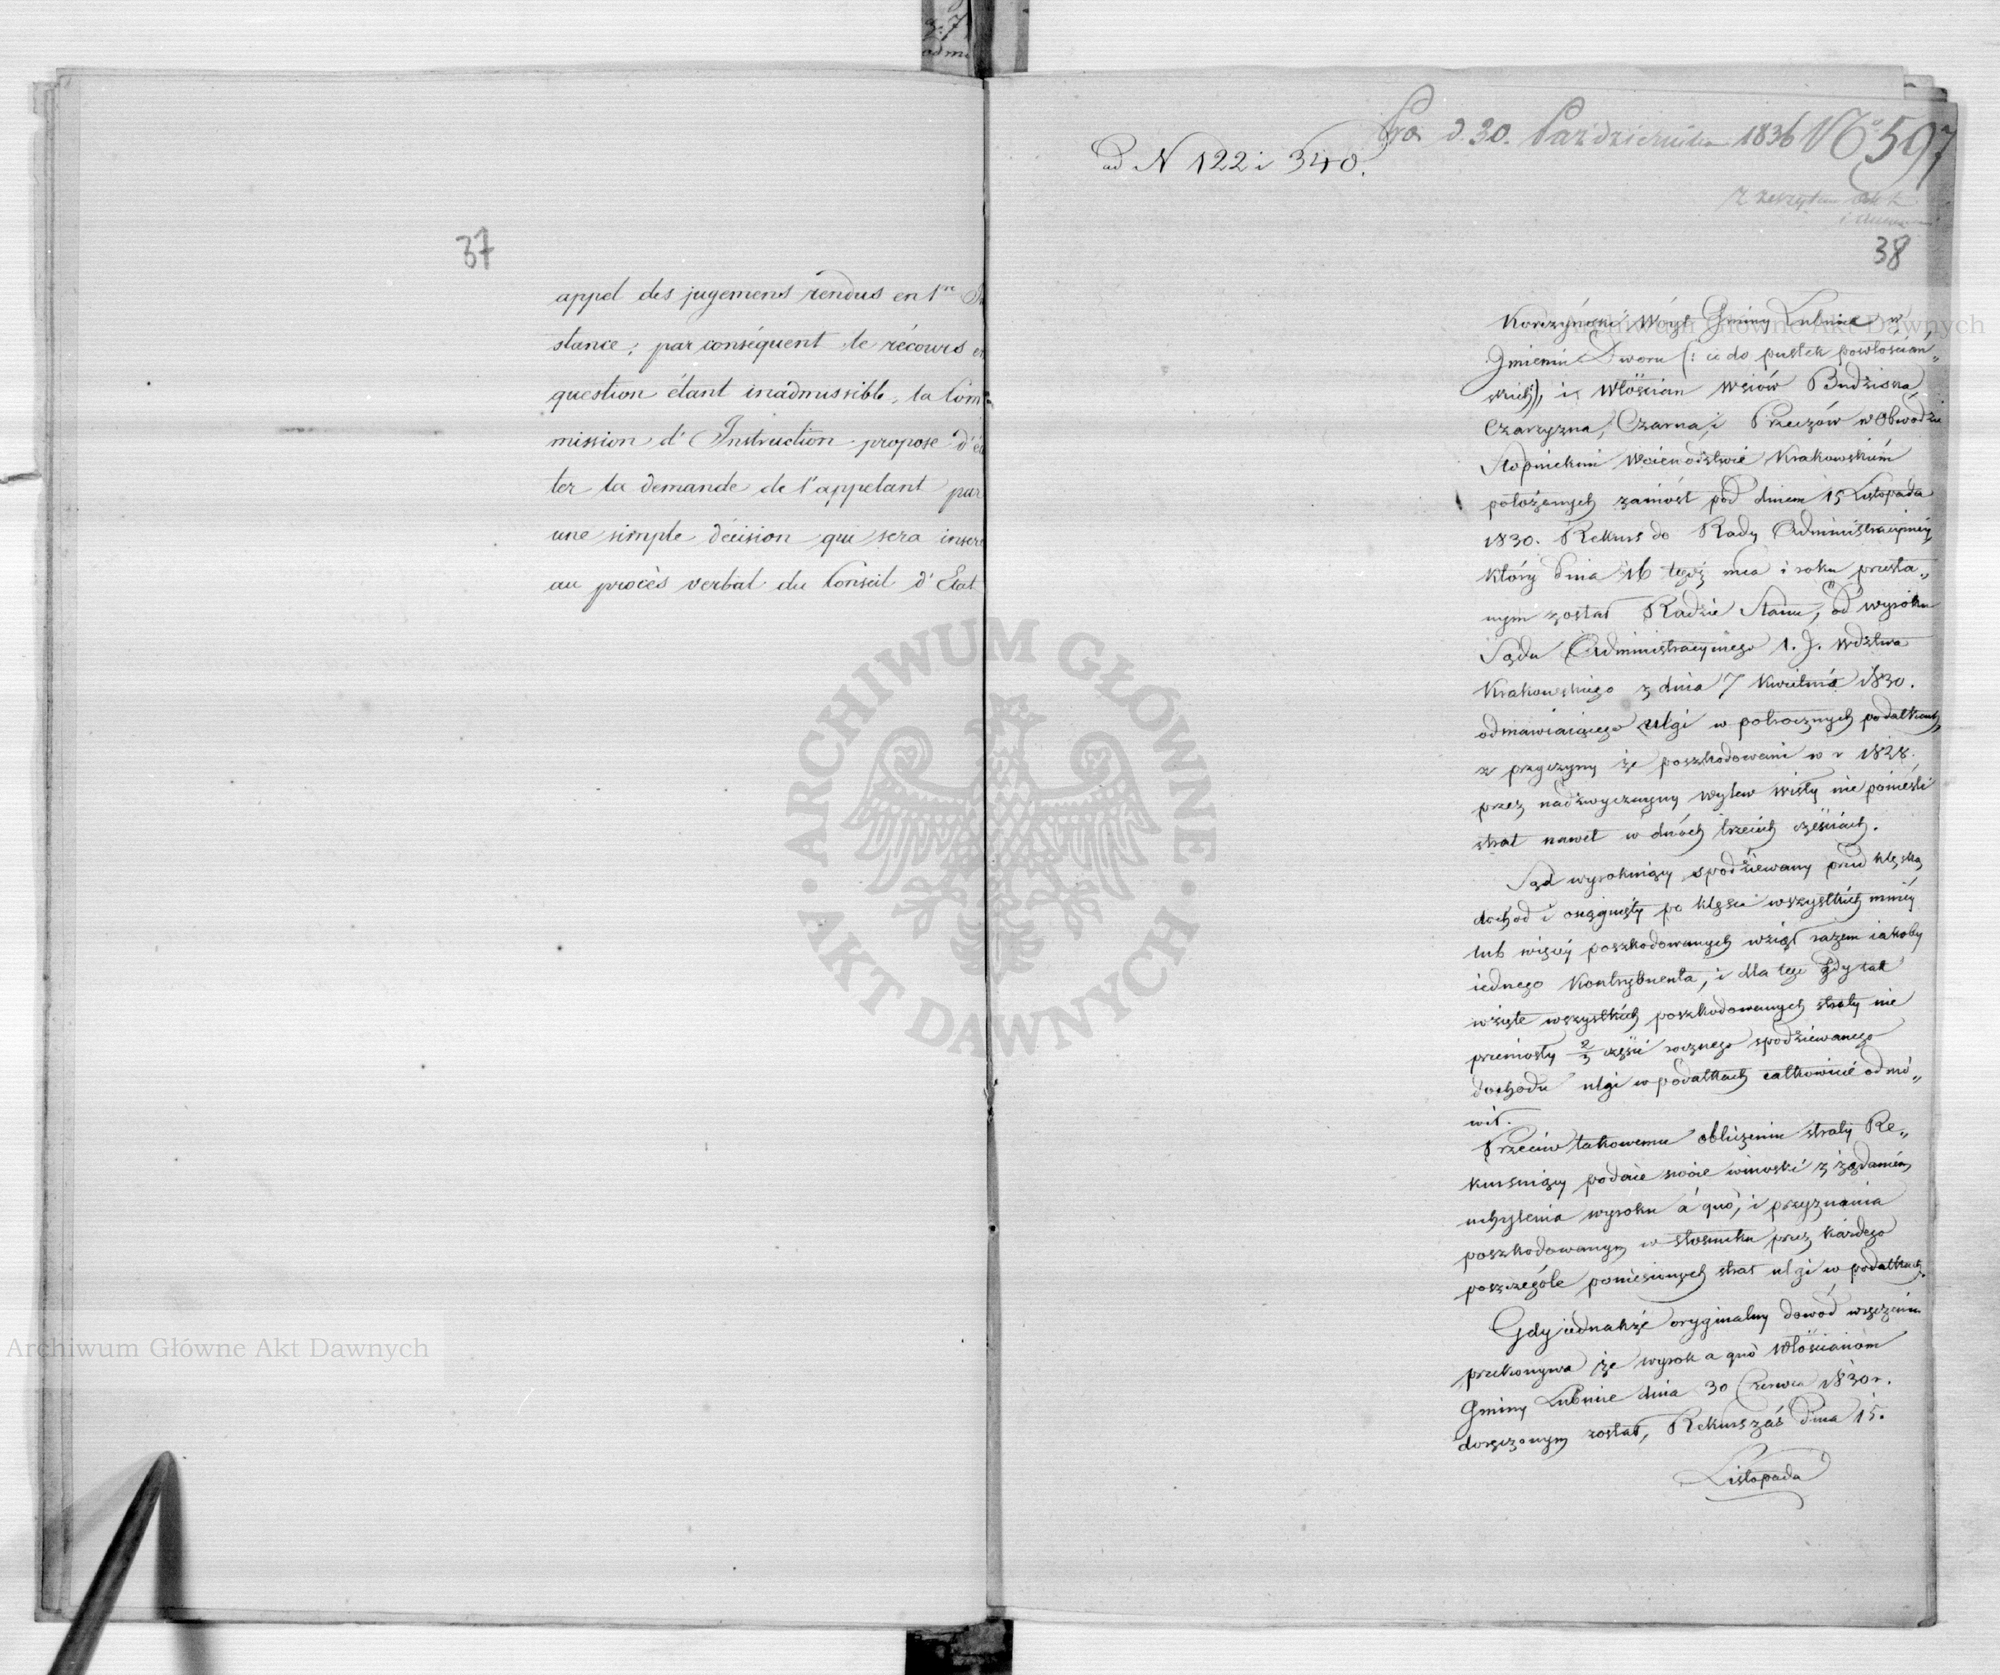 37
appel des jugemens rendus en 1re In
stance; par conséquent le récours en
question étant inadmissible, la Com
mission d'Instruction propose d'éc
ter la demande de l'appelant par
une simple décision qui sera inseré
au procès verbal du Conseil d'Etat
Pra d. 30. Października 1836 No 597
ad N 122 i 340.
38
Korczyński Wójt Gminy Łubnice w
Imieniu Dworu (: co do pustek powłościań„
skich), i Włościan wsiów Budziska
Czarzyzna, Czarna, i Przeczów w Obwodzie
Stopnickim Woiewództwie Krakowskiém
położonych zaniosł pod dniem 15 Listopada
1830. Rekurs do Rady Administracyinéy
który dnia 16 tegoż mca i roku przesła„
nym został Radzie Stanu, od wyroku
Sądu Administracyinego 1. J. Wdztwa
Krakowskiego z dnia 7 Kwietnia 1830.
odmawiaiącego ulgi w półrocznych podatkach,
z przyczyny że poszkodowani w r 1828.
przez nadzwyczayny wylew Wisły nie ponieśli
strat nawet w dwóch trzecich częściach.
Sąd wyrokuiący spodziewany przed klęską
dochod i osiągnięty po klęsce wszystkich mniéy
lub więcéy poszkodowanych wziął razem iakoby
iednego Kontrybuenta, i dla tego gdy tak
wzięte wszystkich poszkodowanych straty nie
przeniosły 2/3 części rocznego spodziewanego
dochodu ulgi w podatkach całkowicie odmó„
wił.
Przeciw takowemu obliczeniu straty Re„
kursuiący podaie swoie wnioski z żądaniem
uchylenia wyroku à quo, i przyznania
poszkodowanym w stosunku przez każdego
poszczególe poniesionych strat ulgi w podatkach.
Gdy iednakże oryginalny dowód wręczenia
przekonywa że wyrok a quo Włościanom
Gminy Łubnice dnia 30 Czerwca 1830 r.
doręczonym został, Rekurs zaś dnia 15.
Listopada
Archiwum Główne Akt Dawnych
Archiwum Główne Akt Dawnych
ARCHIWUM GŁÓWNE
AKT DAWNYCH